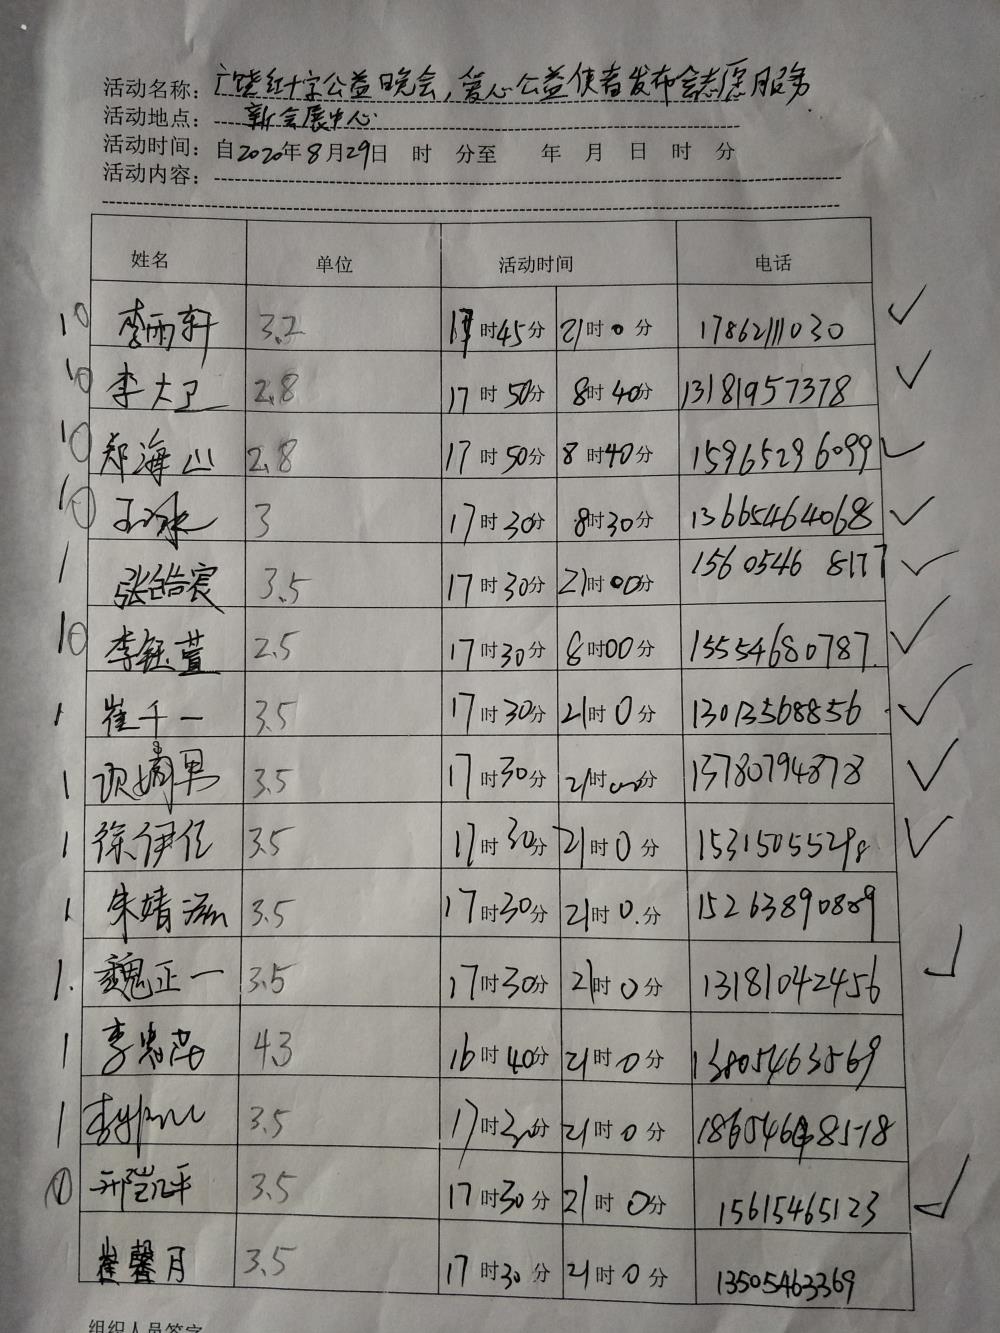 活动名称：广饶红十字公益晚会，爱心公益使者发布会志愿服务
活动地点：新会展中心
活动时间：自2020年8月29日 时 分至 年 月 日 时 分
活动内容：
姓名 单位 活动时间 电话
10 李雨轩 3.2 17时45分 21时0分 17862111030
10 李大卫 2.8 17时50分 8时40分 13181957378
10 郑海山 2.8 17时50分 8时40分 15965296099
10 3 17时30分 8时30分 13665464068
1 张皓宸 3.5 17时30分 21时00分 15605468177
10 李钰萱 2.5 17时30分 8时00分 15554680787
1 崔千一 3.5 17时30分 21时0分 13013568856
1 3.5 17时30分 21时00分 13780794878
1 徐伊 3.5 17时30分 21时0分 15315055298
1 朱婧 3.5 17时30分 21时0分 15263890809
1. 魏正一 3.5 17时30分 21时0分 13181042456
1 李 4.3 16时40分 21时0分 13805463569
1 李 3.5 17时30分 21时0分
邢凯平 3.5 17时30分 21时0分 15615465123
崔馨月 3.5 17时30分 21时0分 13505463369
组织人员签字